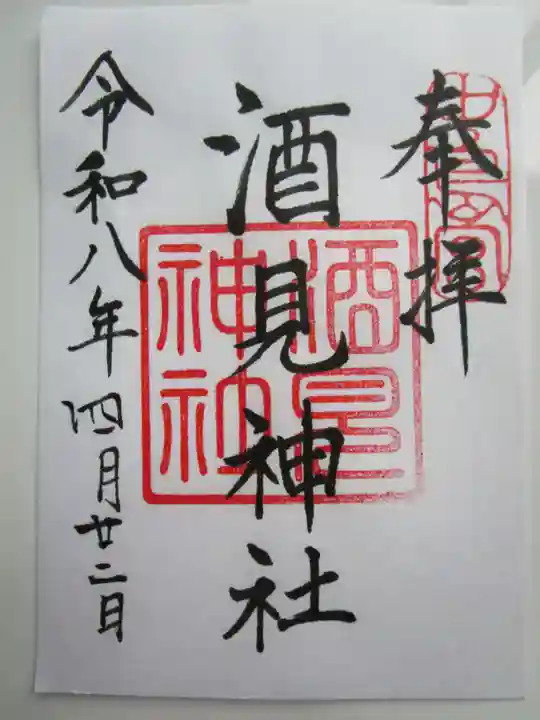 奉拝
酒見神社
酒見神社
令和八年四月廿二日